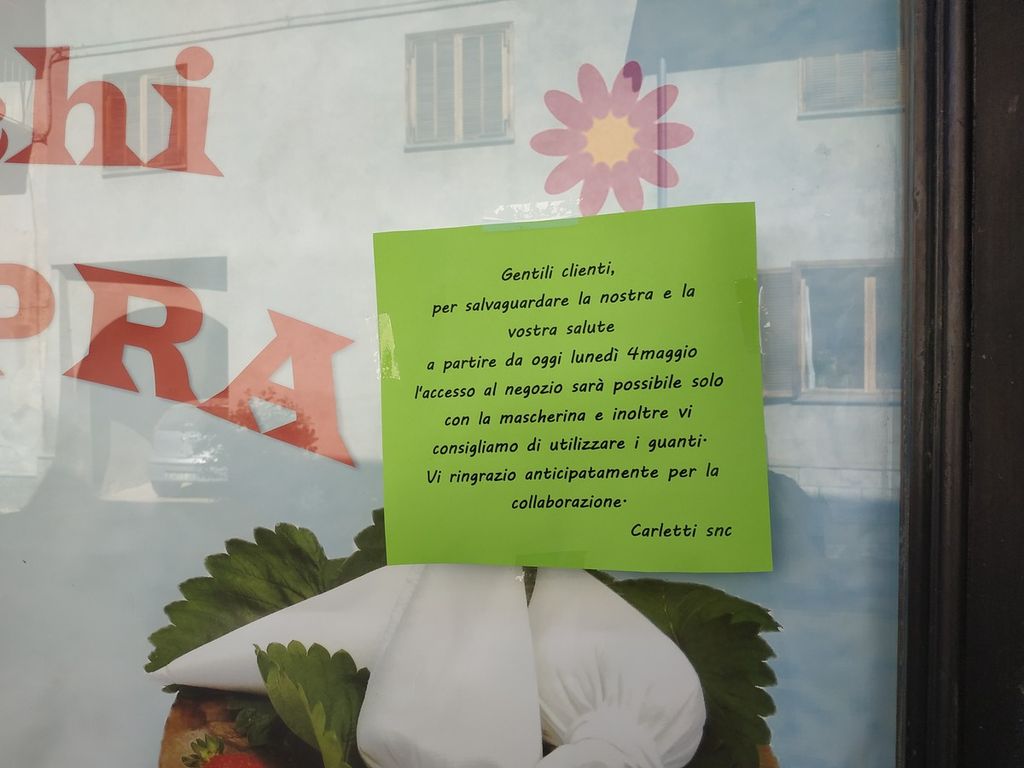 Gentili clienti,
per salvaguardare la nostra e la
vostra salute
a partire da oggi lunedì 4maggio
l'accesso al negozio sarà possibile solo
con la mascherina e inoltre vi
consigliamo di utilizzare i guanti.
Vi ringrazio anticipatamente per la
collaborazione.
Carletti snc